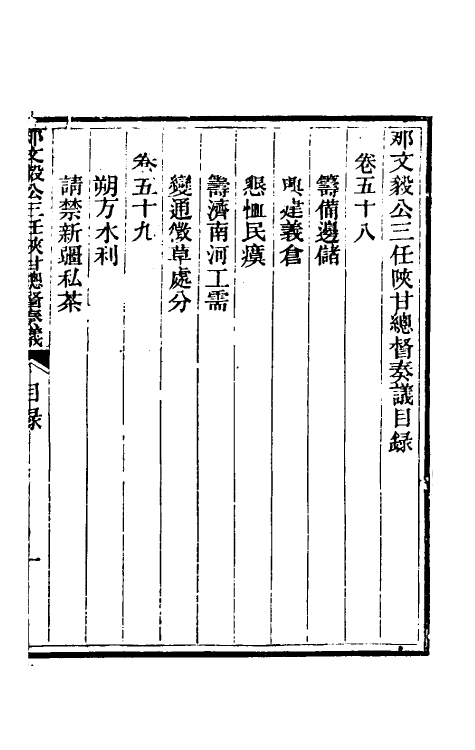 那文毅公三任陝甘總督奏議目錄
卷五十八
籌備邊儲
興建義倉
懇恤民瘼
籌濟南河工需
變通徵草處分
卷五十九
朔方水利
請禁新疆私茶
那文毅公三任陝甘總督奏議
目錄
一